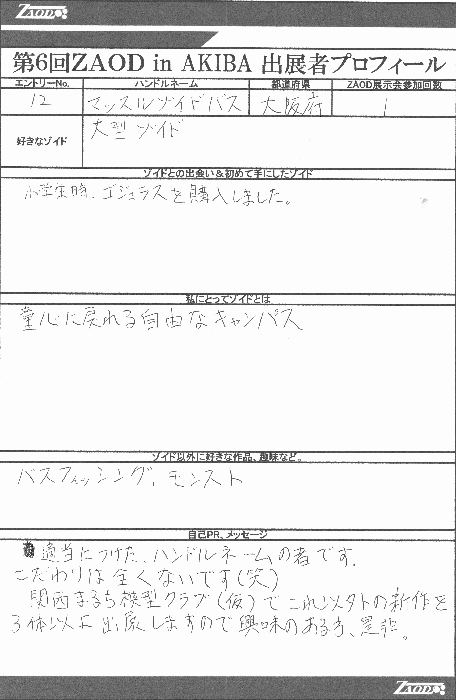 ZAOD
第6回ZAOD in AKIBA 出展者プロフィール
エントリーNo. ハンドルネーム 都道府県 ZAOD展示会参加回数
12 マッスルゾイドバス 大阪府 1
好きなゾイド 大型ゾイド
ゾイドとの出会い＆初めて手にしたゾイド
小学生時、ゴジュラスを購入しました。
私にとってゾイドとは
童心に戻れる自由なキャンパス
ゾイド以外に好きな作品、趣味など。
バスフィッシング、モンスト
自己PR、メッセージ
適当につけた、ハンドルネームの者です。
こだわりは全くないです(笑)
関西まるち模型クラブ(仮)でこれ以外の新作を
3体以上出展しますので興味のある方、是非。
ZAOD